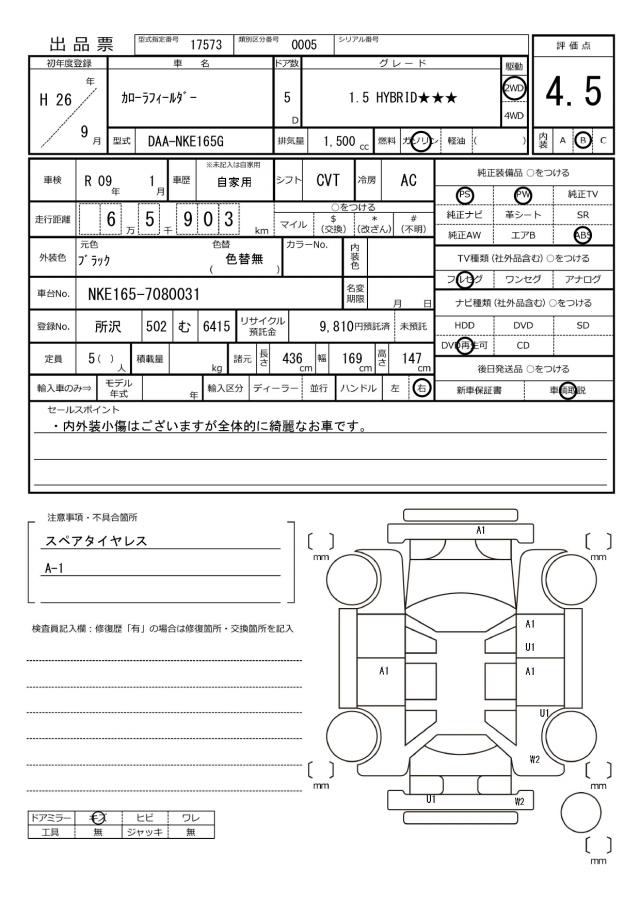 出品票 型式指定番号 17573 類別区分番号 0005 シリアル番号
評価点
4.5
内装 A B C
初年度登録 車名 ドア数 グレード 駆動
H 26 年 9 月
カローラフィールダー 5 D 1.5 HYBRID★★★ 2WD
4WD
型式 DAA-NKE165G 排気量 1,500 cc 燃料 ガソリン 軽油 ( )
車検 R 09 年 1 月 車歴 ※未記入は自家用 自家用 シフト CVT 冷房 AC
走行距離 6 5 9 0 3 万 千 km
○をつける
マイル $ (交換) * (改ざん) # (不明)
外装色 元色 ブラック 色替 ( 色替無 ) カラーNo. 内装色
車台No. NKE165-7080031 名変期限 月 日
登録No. 所沢 502 む 6415 リサイクル預託金 9,810円預託済 未預託
定員 5 ( ) 人 積載量 kg 諸元 長さ 436 cm 幅 169 cm 高さ 147 cm
輸入車のみ⇒ モデル年式 年 輸入区分 ディーラー 並行 ハンドル 左 右
純正装備品 ○をつける
PS PW 純正TV
純正ナビ 革シート SR
純正AW エアB ABS
TV種類 (社外品含む) ○をつける
フルセグ ワンセグ アナログ
ナビ種類 (社外品含む) ○をつける
HDD DVD SD
DVD再生可 CD
後日発送品 ○をつける
新車保証書 車輌取説
セールスポイント
・内外装小傷はございますが全体的に綺麗なお車です。
注意事項・不具合箇所
スペアタイヤレス
A-1
検査員記入欄：修復歴「有」の場合は修復箇所・交換箇所を記入
ドアミラー キズ ヒビ ワレ
工具 無 ジャッキ 無
A1
mm
mm
A1
U1
A1
A1
U1
W2
mm
mm
U1
W2
mm